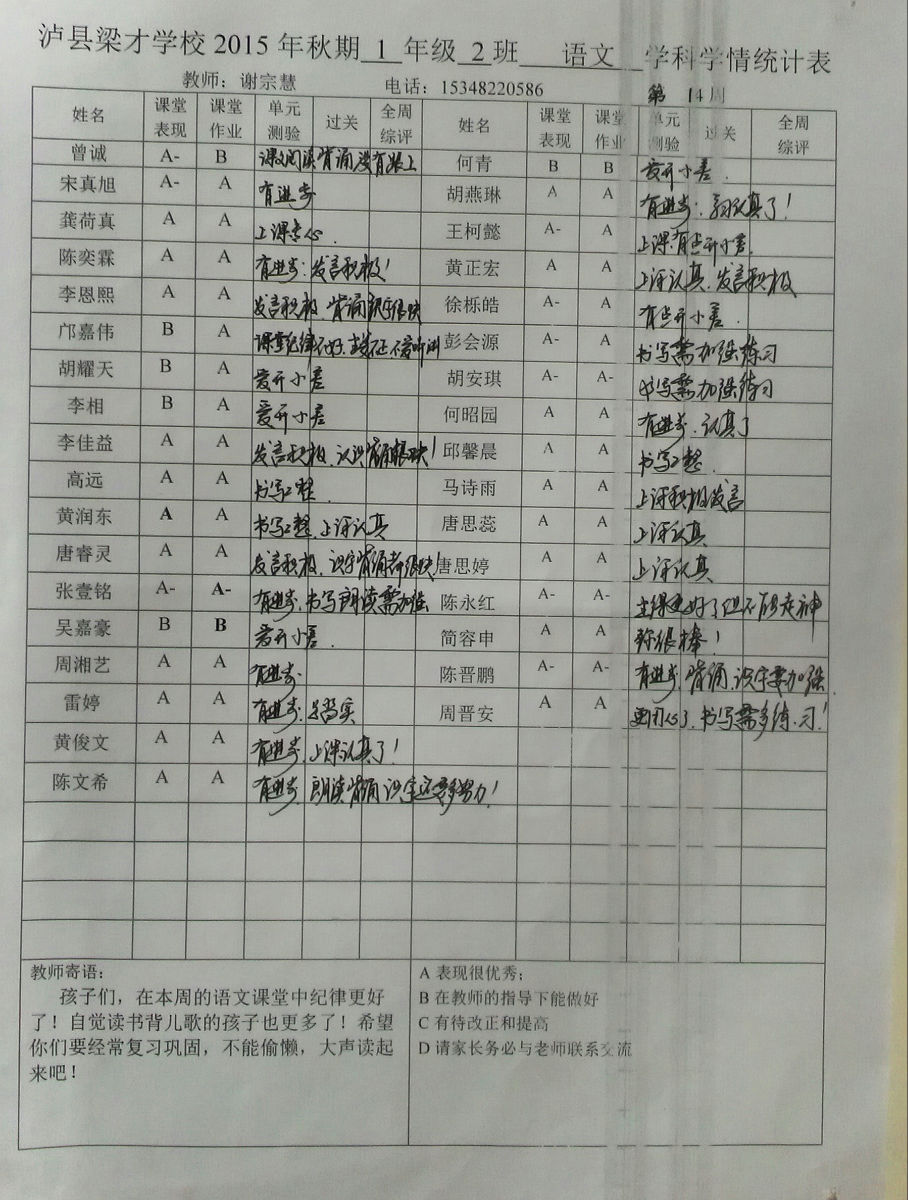 泸县梁才学校 2015 年秋期 1 年级 2 班 语文 学科学情统计表
教师：谢宗慧 电话：15348220586 第 14 周
姓名 课堂表现 课堂作业 单元测验 过关 全周综评 姓名 课堂表现 课堂作业 单元测验 过关 全周综评
曾诚 A- B 课文阅读背诵没有跟上 何青 B B 爱开小差.
宋真旭 A- A 有进步 胡燕琳 A A 有进步. 认真了！
龚荷真 A A 上课专心. 王柯懿 A- A 上课有点开小差.
陈奕霖 A A 有进步：发言积极！ 黄正宏 A A 上课认真. 发言积极
李恩熙 A A 发言积极. 背诵识字很快 徐栎皓 A- A 有点开小差.
邝嘉伟 B A 课堂纪律不好. 不爱听讲 彭会源 A- A 书写需加强练习
胡耀天 B A 爱开小差 胡安琪 A- A- 书写需加强练习
李相 B A 爱开小差 何昭园 A A 有进步. 认真了
李佳益 A A 发言积极. 认识背诵很快！ 邱馨晨 A A 书写工整.
高远 A A 书写工整. 马诗雨 A A 上课积极发言
黄润东 A A 书写工整. 上课认真 唐思蕊 A A 上课认真
唐睿灵 A A 发言积极. 识字背诵都很快! 唐思婷 A A 上课认真
张壹铭 A- A- 有进步. 书写朗读需加强 陈永红 A- A- 上课更好了但不能走神
吴嘉豪 B B 爱开小差. 简容申 A A 你很棒！
周湘艺 A A 有进步. 陈晋鹏 A- A- 有进步. 背诵. 识字要加强.
雷婷 A A 有进步. 踏实 周晋安 A A 更用心了. 书写需多练习！
黄俊文 A A 有进步. 上课认真了！
陈文希 A A 有进步. 朗读背诵识字还要多努力！
教师寄语：
孩子们，在本周的语文课堂中纪律更好
了！自觉读书背儿歌的孩子也更多了！希望
你们要经常复习巩固，不能偷懒，大声读起
来吧！
A 表现很优秀；
B 在教师的指导下能做好
C 有待改正和提高
D 请家长务必与老师联系交流